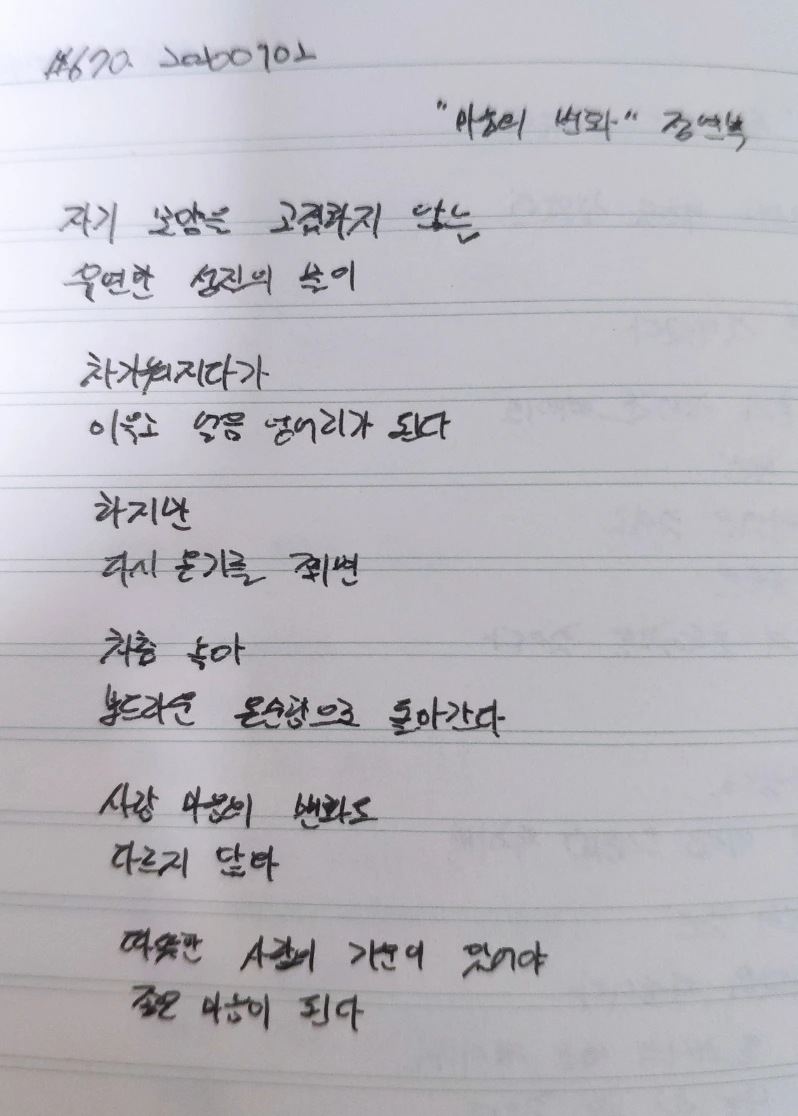 #670. 20200702
"마음의 변화" 정연복
자기 모양을 고집하지 않는
유연한 성질의 물이
차가워지다가
이윽고 얼음 덩어리가 된다
하지만
다시 온기를 쬐면
차츰 녹아
보드라운 온순함으로 돌아간다
사람 마음의 변화도
다르지 않다
따뜻한 사랑의 기운이 있어야
좋은 마음이 된다